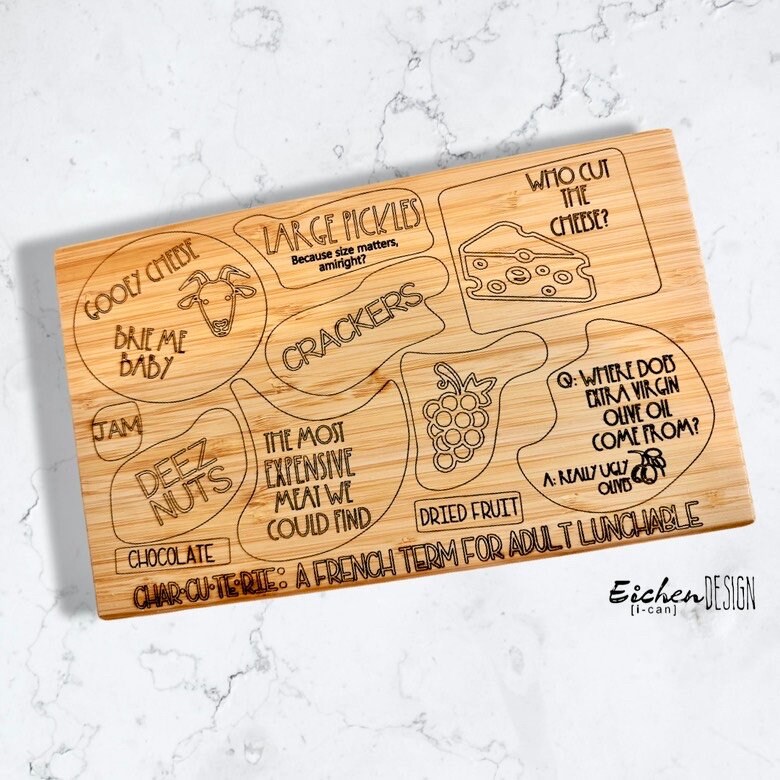 GOOEY CHEESE
BRIE ME
BABY
LARGE PICKLES
Because size matters,
amiright?
WHO CUT
THE
CHEESE?
CRACKERS
JAM
DEEZ
NUTS
THE MOST
EXPENSIVE
MEAT WE
COULD FIND
Q: WHERE DOES
EXTRA VIRGIN
OLIVE OIL
COME FROM?
A: REALLY UGLY
OLIVES
DRIED FRUIT
CHOCOLATE
CHAR·CU·TE·RIE: A FRENCH TERM FOR ADULT LUNCHABLE
Eichen DESIGN
[i-can]